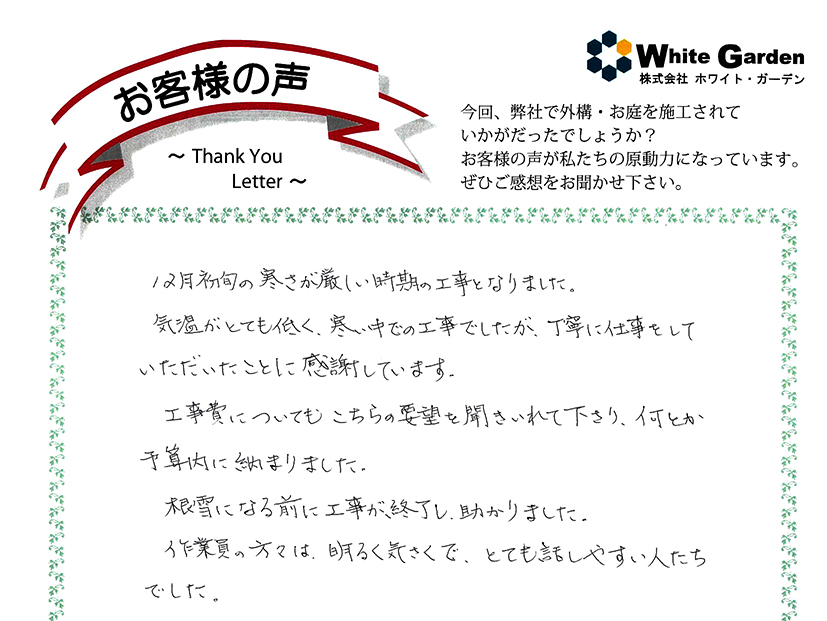 お客様の声
～ Thank You
Letter ～
White Garden
株式会社 ホワイト・ガーデン
今回、弊社で外構・お庭を施工されて
いかがだったでしょうか？
お客様の声が私たちの原動力になっています。
ぜひご感想をお聞かせ下さい。
12月初旬の寒さが厳しい時期の工事となりました。
気温がとても低く、寒い中での工事でしたが、丁寧に仕事をして
いただいたことに感謝しています。
工事費についてもこちらの要望を聞きいれて下さり、何とか
予算内に納まりました。
根雪になる前に工事が終了し、助かりました。
作業員の方々は、明るく気さくで、とても話しやすい人たち
でした。